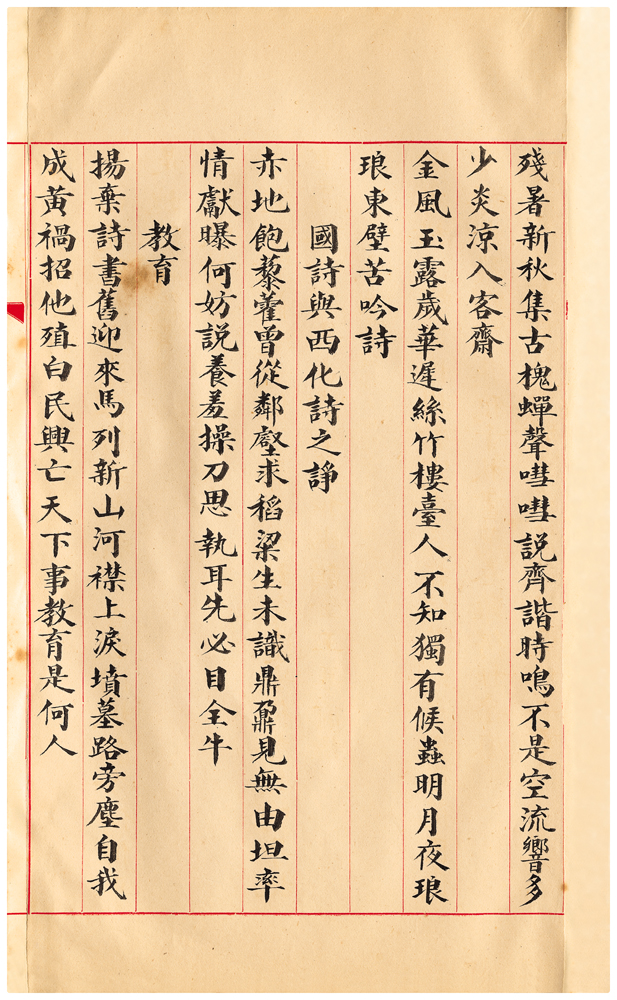 殘暑新秋集古槐蟬聲嘒嘒説齊諧時鳴不是空流響多
少炎涼入客齋
金風玉露歲華遲絲竹樓臺人不知獨有候蟲明月夜琅
琅東壁苦吟詩
國詩與西化詩之諍
赤地飽藜藿曾從鄰壑求稻粱生未識鼎鼐見無由坦率
情獻曝何妨説養羞操刀思執耳先必目全牛
教育
揚棄詩書舊迎來馬列新山河襟上淚墳墓路旁塵自我
成黃禍招他殖白民興亡天下事教育是何人